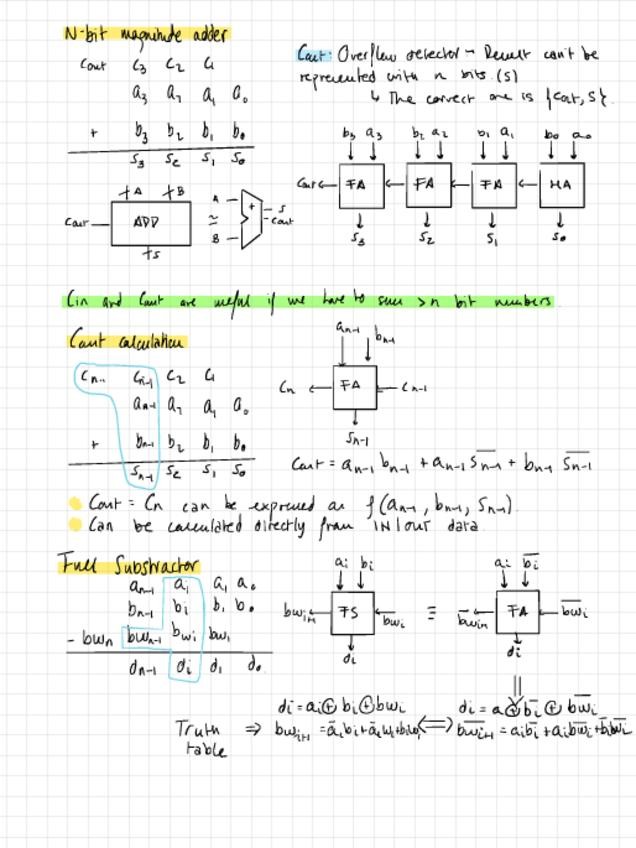 N-bit magnitude adder
Cout C3 C2 C1
a3 a2 a1 a0
+ b3 b2 b1 b0
S3 S2 S1 S0
Cout: Overflow detector - Result can't be
represented with n bits (S)
↳ The correct one is {Cout, S}.
b3 a3 b2 a2 b1 a1 b0 a0
Cout ← FA ← FA ← FA ← HA
S3 S2 S1 S0
A B
Cout ADD
S
≃
A + S
B Cout
Cin and Cout are useful if we have to sum >n bit numbers.
Cout calculation
Cn.. Cn-1 C2 C1
an-1 a2 a1 a0
+ bn-1 b2 b1 b0
Sn-1 S2 S1 S0
an-1 bn-1
Cn ← FA ← Cn-1
Sn-1
Cout = an-1 bn-1 + an-1 S̅n-1 + bn-1 S̅n-1
Cout = Cn can be expressed as f(an-1, bn-1, Sn-1).
Can be calculated directly from IN/OUT data
Full Substractor
an-1 ai a1 a0
bn-1 bi b1 b0
- bwn bwn-1 bwi bw1
dn-1 di d1 d0
ai bi ai b̅i
bwi+1 ← FS ← bwi ≡ FA ← b̅w̅i
di di
Truth table ⇒
di = ai ⊕ bi ⊕ bwi
⇔
di = a ⊕ b̅i ⊕ b̅w̅i